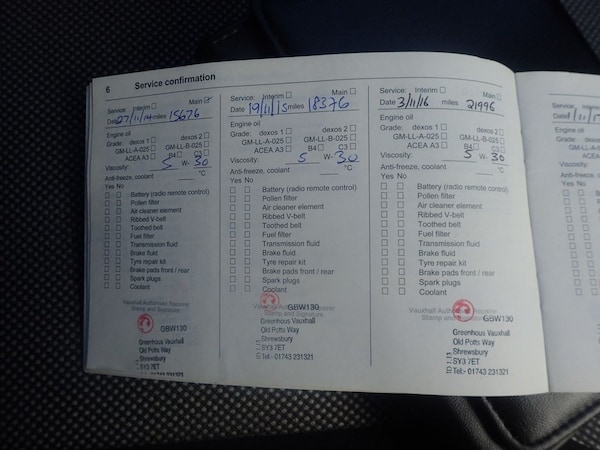 6 Service confirmation
Service: Interim Main
Date 27/11/14 miles 15676
Engine oil
Grade: dexos 1 dexos 2
GM-LL-A-025 GM-LL-B-025
ACEA A3 B4 C3
Viscosity: 5 W- 30
Anti-freeze, coolant °C
Yes No
Battery (radio remote control)
Pollen filter
Air cleaner element
Ribbed V-belt
Toothed belt
Fuel filter
Transmission fluid
Brake fluid
Tyre repair kit
Brake pads front / rear
Spark plugs
Coolant
Vauxhall Authorised Repairer
Stamp and Signature
GBW130
Greenhous Vauxhall
Old Potts Way
Shrewsbury
SY3 7ET
Service: Interim Main
Date 19/11/15 miles 18376
Engine oil
Grade: dexos 1 dexos 2
GM-LL-A-025 GM-LL-B-025
ACEA A3 B4 C3
Viscosity: 5 W- 30
Anti-freeze, coolant °C
Yes No
Battery (radio remote control)
Pollen filter
Air cleaner element
Ribbed V-belt
Toothed belt
Fuel filter
Transmission fluid
Brake fluid
Tyre repair kit
Brake pads front / rear
Spark plugs
Coolant
Vauxhall Authorised Repairer
Stamp and Signature
GBW130
Greenhous Vauxhall
Old Potts Way
Shrewsbury
SY3 7ET
Tel:- 01743 231321
Service: Interim Main
Date 3/11/16 miles 21996
Engine oil
Grade: dexos 1 dexos 2
GM-LL-A-025 GM-LL-B-025
ACEA A3 B4 C3
Viscosity: 5 W- 30
Anti-freeze, coolant °C
Yes No
Battery (radio remote control)
Pollen filter
Air cleaner element
Ribbed V-belt
Toothed belt
Fuel filter
Transmission fluid
Brake fluid
Tyre repair kit
Brake pads front / rear
Spark plugs
Coolant
Vauxhall Authorised Repairer
Stamp and
GBW130
Greenhous Vauxhall
Old Potts Way
Shrewsbury
SY3 7ET
Tel:- 01743 231321
Service:
Date
Engine oil
Grade:
Viscosity:
Anti-freeze,
Yes No